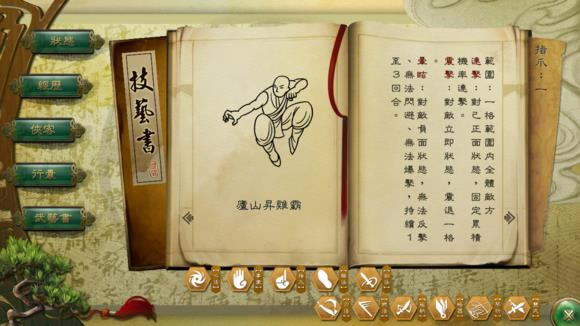 狀態
經歷
俠客
行囊
武藝書
技藝書
廬山昇雞霸
指爪：一
範圍：一格範圍內全體敵方
連擊：對己正面狀態，固定累積
機率連擊。
震擊：對敵立即狀態，震退一格
。
暈眩：對敵負面狀態，無法反擊
、無法閃避、無法爆擊，持續1
至3回合。